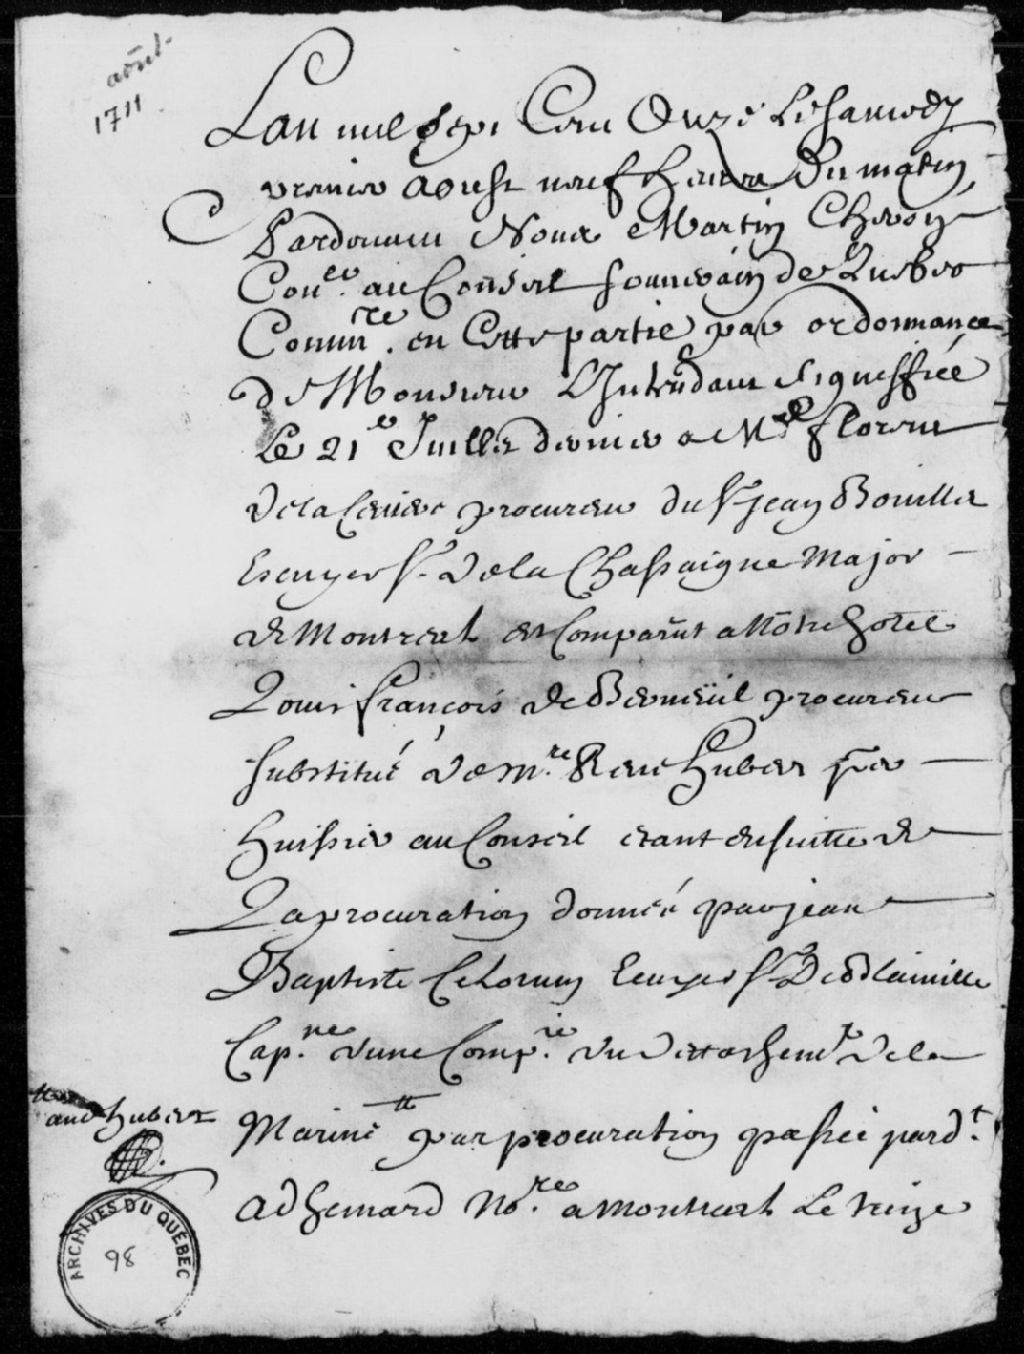 aoust
1711
Lan mil sept Cent Onze Le Samedy
premier aoust neuf heures Du matin
Pardevant Nous Martin Cheron
Con.er au Conseil souverain de Quebec
Comm.re en Cette partie par ordonnance
de Monsieur L'Intendant signiffiée
Le 21e Juillet dernier a M.e florent
dela Cetiere procureur du Sr. jean Bouillet
Escuyer Sr. dela Chassaigne Major
de Montreal est Comparut a Nôtre hotel
Louis françois de Berneüil procureur
substitué de M.re René hubert p.er
huissier au Conseil étant ensuitte de
La procuration donnée par jean
Baptiste Celoron Ecuyer Sr. De Blainville
Cap.ne d'une Comp.ie du Detachem.t de la
Marine # par procuration passée pard.t
adhemard No.re a Montreal Le treize
# aud. hubert
ARCHIVES DU QUÉBEC
98